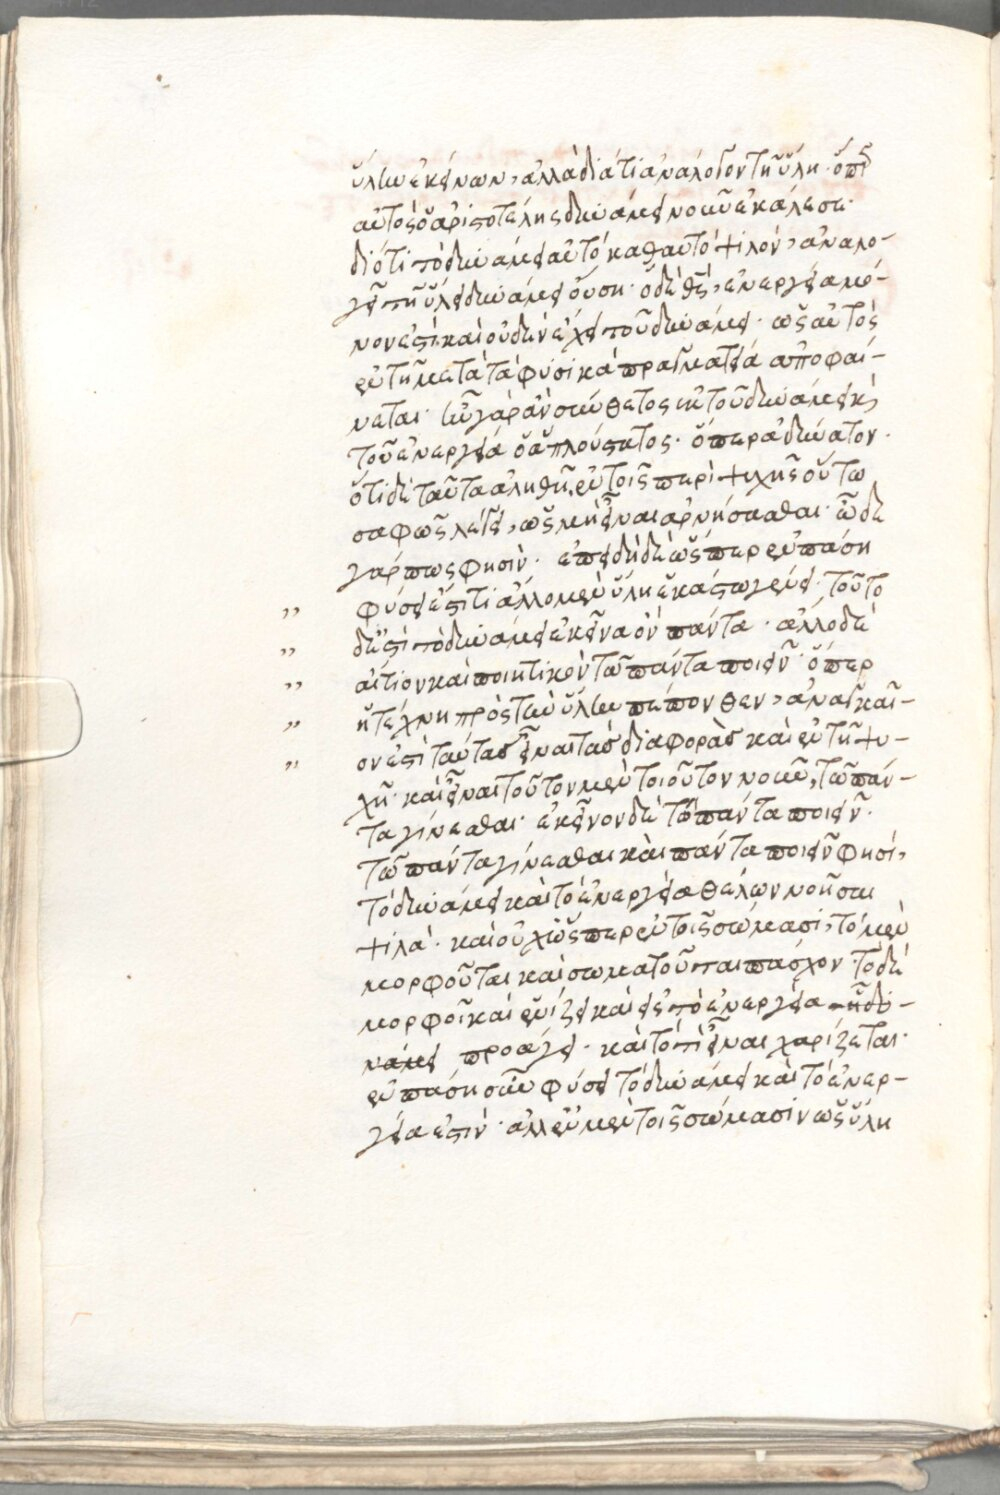 ὕλην ἐκείνων, ἀλλὰ διά τι ἀνάλογον τῆ ὕλη· ὅπερ
αὐτὸς ὁ ἀριστοτέλης δυνάμει νοῦν ἐκάλεσε·
διότι τὸ δυνάμει αὐτὸ καθαυτὸ ψιλὸν, ἀναλο-
γεῖ τῆ ὕλη δυνάμει οὔση· ὁ δὲ θεὸς, ἐνεργεία μό-
νον ἐστὶ καὶ οὐδὲν ἔχει τοῦ δυνάμει· ὡς αὐτὸς
ἐν τῆ μετὰ τὰ φυσικὰ πραγματεία ἀποφαί-
νεται· ἦν γὰρ ἂν σύνθετος ἐκ τοῦ δυνάμει καὶ
τοῦ ἐνεργεία ὁ ἁπλούστατος· ὅπερ ἀδύνατον·
ὅτι δὲ ταῦτα ἀληθῆ, ἐν τοῖς περὶ ψυχῆς οὕτω
σαφῶς λέγει, ὡς μὴ εἶναι ἀρνήσασθαι· ὧδε
γάρ πως φησίν· ἐπειδὴ δὲ ὥσπερ ἐν πάση
φύσει ἐστί τι ἄλλο μὲν ὕλη ἑκάστω γένει· τοῦτο
δέ ἐστι τὸ δυνάμει ἐκεῖνα ὂν πάντα· ἄλλο δὲ
αἴτιον καὶ ποιητικὸν τῶ πάντα ποιεῖν· ὅπερ
ἡ τέχνη πρὸς τὴν ὕλην πέπονθεν, ἀναγκαῖ-
ον ἐστὶ ταύτας εἶναι τὰς διαφορὰς καὶ ἐν τῆ ψυ-
χῆ· καὶ εἶναι τοῦτον μὲν τοιοῦτον νοῦν, τῶ πάν-
τα γίνεσθαι· ἐκεῖνον δὲ τῶ πάντα ποιεῖν·
τῶ πάντα γίνεσθαι καὶ πάντα ποιεῖν φησὶ,
τὸ δυνάμει καὶ τὸ ἐνεργεία θέλων νοῆσαι
ψιλά· καὶ οὐχ ὥσπερ ἐν τοῖς σώμασι, τὸ μὲν
μορφοῦται καὶ σωματοῦται πάσχον· τὸ δὲ
μορφοῖ καὶ
προάγει· καὶ τὸ τὶ εἶναι χαρίζεται·
ἐν πάση οὖν φύσει τὸ δυνάμει καὶ τὸ ἐνερ-
γεία ἐστίν· ἀλλ' ἐν μὲν τοῖς σώμασιν ὡς ὕλη